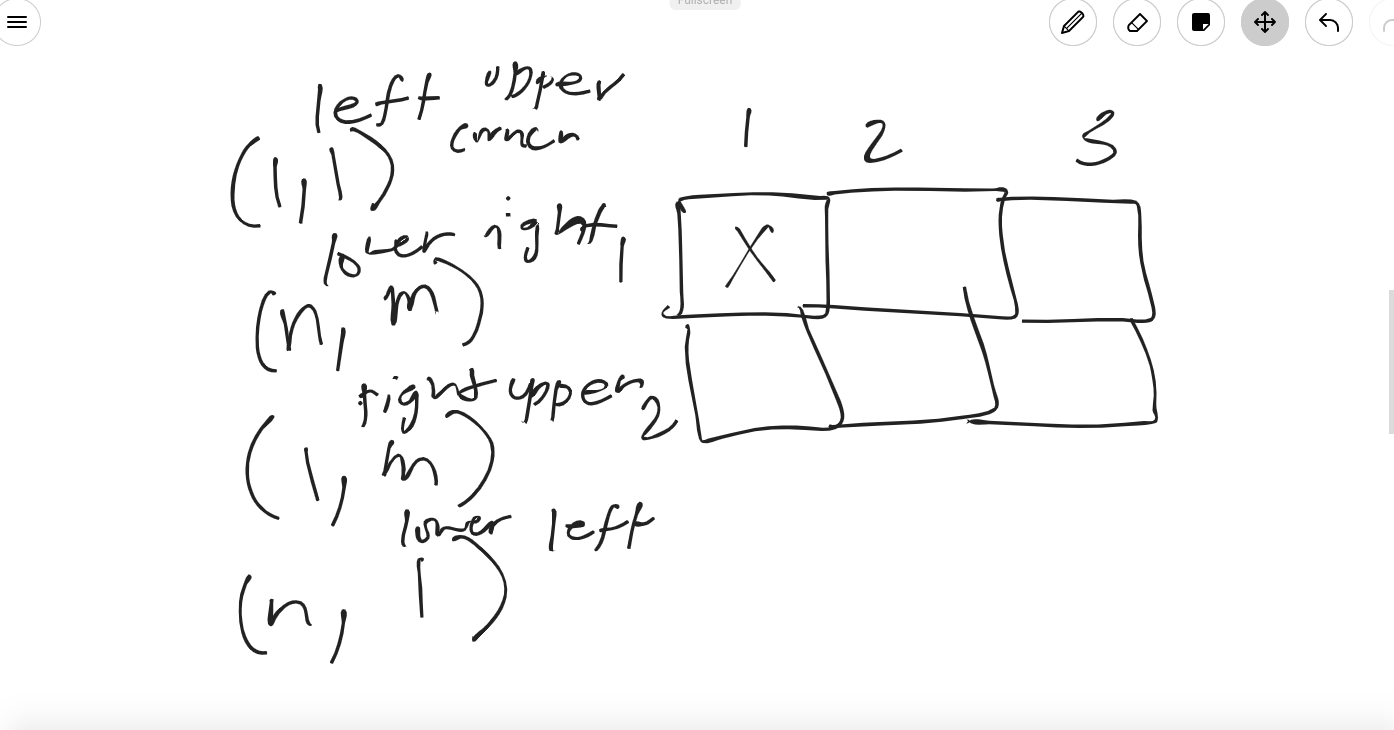 Fullscreen
left upper
corner
(1,1)
lower right
(n, m)
right upper
(1, m)
lower left
(n, 1)
1 2 3
1 X
2